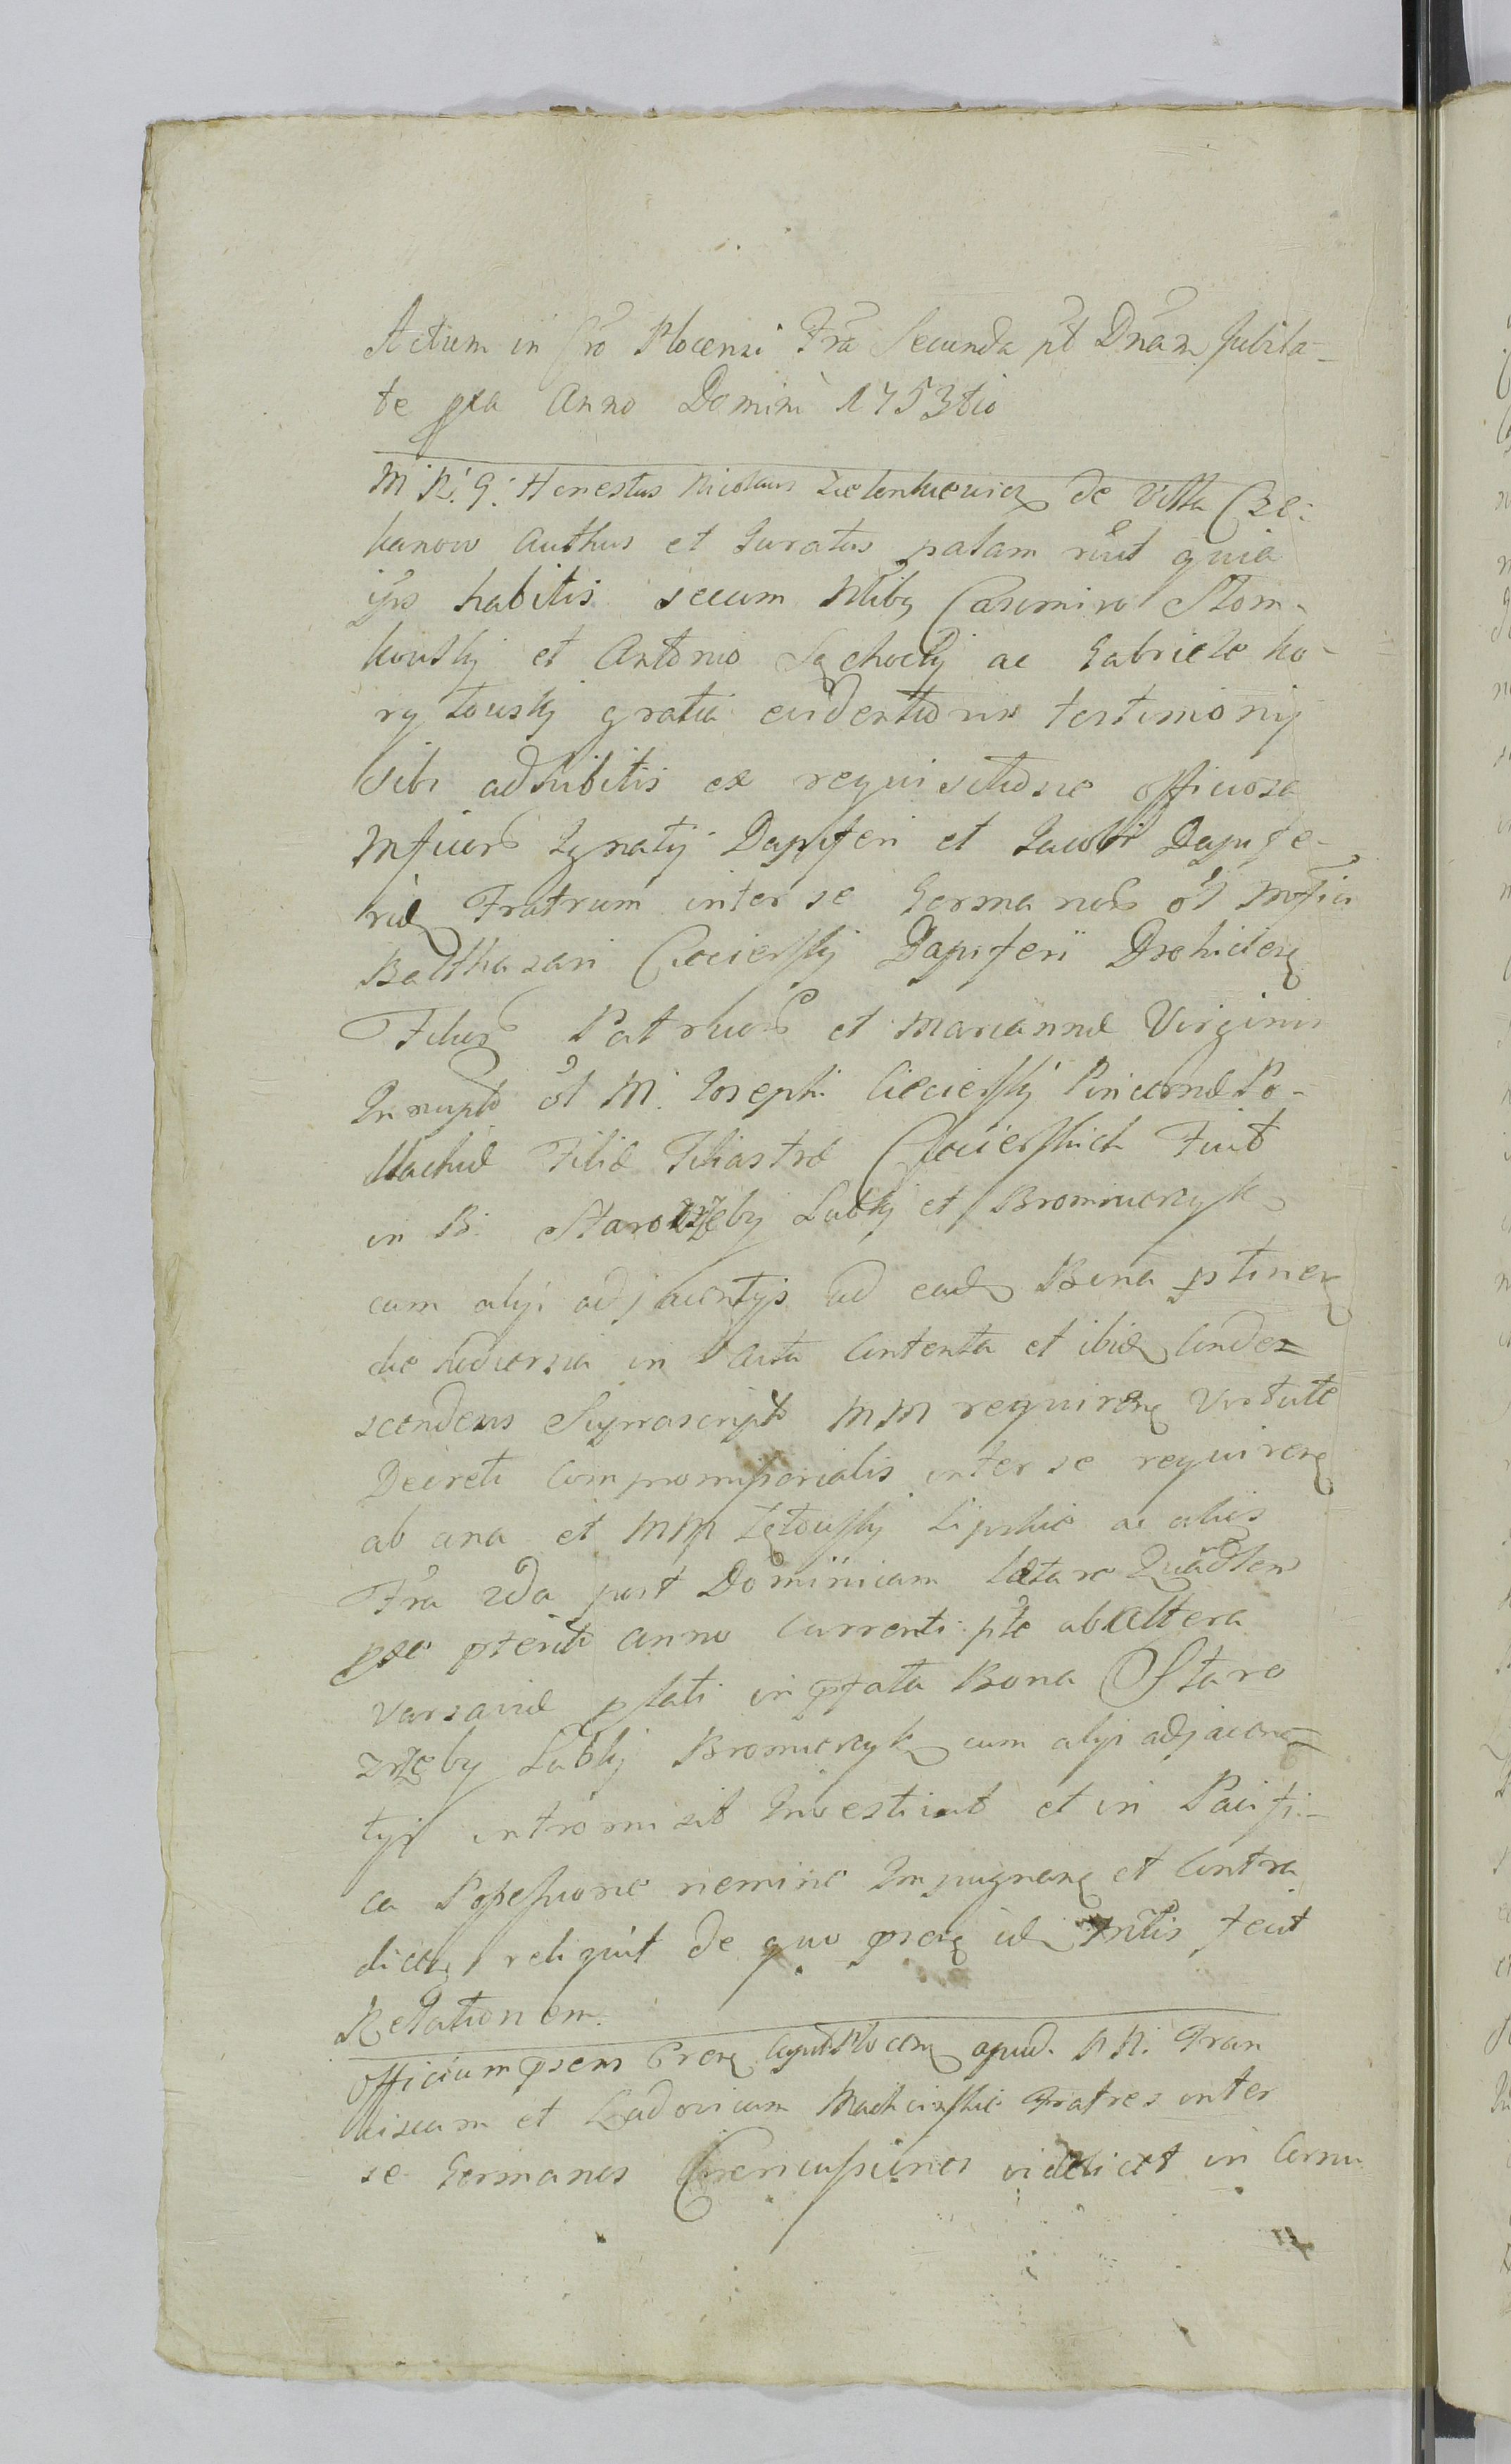 Actum in Cro Plocensi Fra Secunda pt Dnam Jubila-
te pxa Anno Domini 1753tio
M. R. G. Honestus Nicolaus Zielenkiewicz de Villa Cze-
kanow Authus et Juratus palam rlut quia
ips habitis secum Nlibq Casimiro Slom-
kowskj et Antonio Sęchockj ac Gabriele Ko-
rytowskj gratia evidentioris testimonij
sibi adhibitis ex requisitione officiosa
Mficor Ignatij Dapiferi et Jacobi Dapife-
ridæ Fratrum inter se Germanor ol Mfici
Balthasari Ciecierskj Dapiferi Drohicien
Filior Patruor et Mariannæ Virginis
Innupt ol M. Josephi Ciecierskj Pincernæ Po-
dlachiæ Filiæ Filiastræ Ciecierskich Fuit
in B. Starozrzeby Lubkj et Bromierzyk
cum alijs adjacentijs ad ead Bona ptinen
die hodierna in Acta contenta et ibid conde=
scendens Suprascript MM requiren Virtute
Decreti Compromissorialis inter se requiren
ab una et MM Zętowskj Lipskie ac alios
Fra 2da post Dominicam Lætare Quadlem
pxe pterit anno currenti pte ab altera
Varsaviæ plati in pfata Bona Staro
zrzeby Lubkj Bromierzyk cum alijs adjacen=
tijs intromisit Investivit et in Pacifi-
ca Possessione nemine Impugnan et Contra
dicen reliquit de quo psen id Mtlis fecit
Relationem.
Officium psens Cren Capit Plocen apud NN. Fran
ciscum et Ludovicum Machcinskie Fratres inter
se Germanos Concussiones videlicet in Cornu